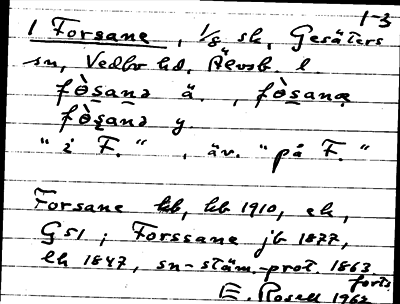 1-3
1 Forsane, 1/8 sk, Gesäters
sn, Vedbo hd, Älvsb. l.
fò̀sanə ä., fò̀sanæ
fò̀sanə y.
"i F.", äv. "på F."
Forsane kb, hb 1910, ek,
GS1; Forssane jb 1877,
lh 1847, sn-stäm.-prot. 1863
forts
E. Rosell 1962